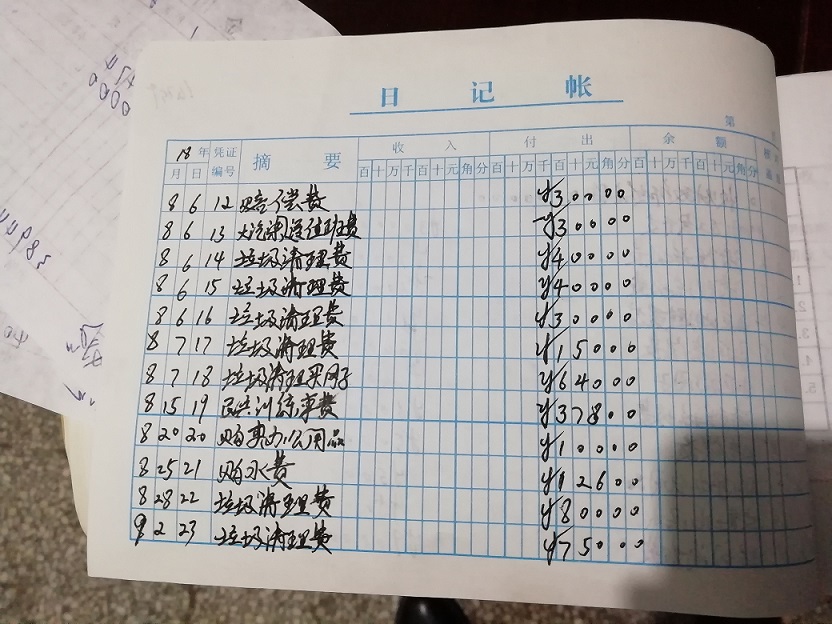 日记帐
第 页
18年 凭证 摘要 收入 付出 余额
月 日 编号 百十万千百十元角分 百十万千百十元角分 百十万千百十元角分
8 6 12 赔偿费 ¥30000
8 6 13 值班费 ¥30000
8 6 14 垃圾清理费 ¥40000
8 6 15 垃圾清理费 ¥40000
8 6 16 垃圾清理费 ¥30000
8 7 17 垃圾清理费 ¥15000
8 7 18 垃圾清理 ¥64000
8 15 19 民兵训练车费 ¥37800
8 20 20 购买办公用品 ¥10000
8 25 21 购水费 ¥12600
8 28 22 垃圾清理费 ¥80000
9 2 23 垃圾清理费 ¥75000